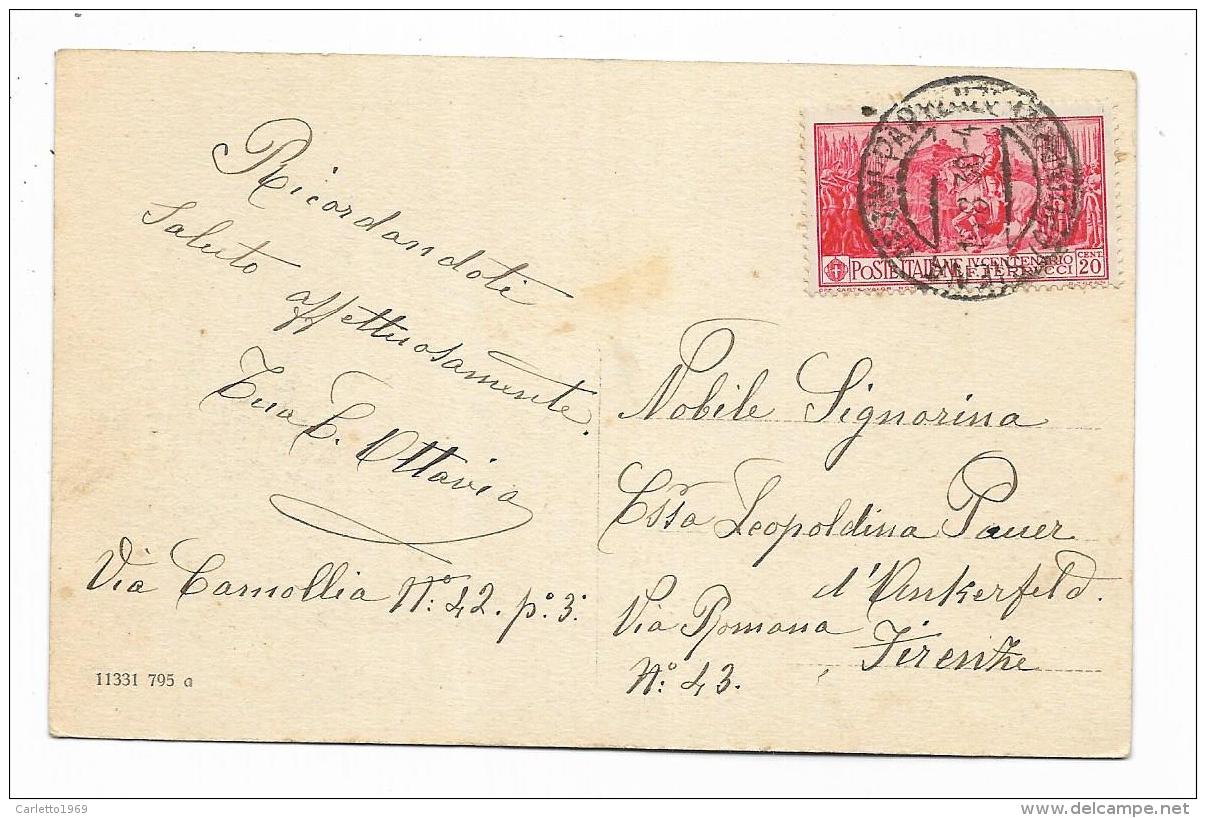 Ricordandoti
Saluto
affettuosamente.
Tua C. Ottavia
Via Camollia N.° 42. p.° 3.°
11331 795 a
POSTE ITALIANE IV CENTENARIO
F. FERRUCCI
CENT.
20
Nobile Signorina
C.ssa Leopoldina Pauer
d'Ankerfeld.
Via Romana Firenze
N.° 43.
Carletto1969
delcampe.net